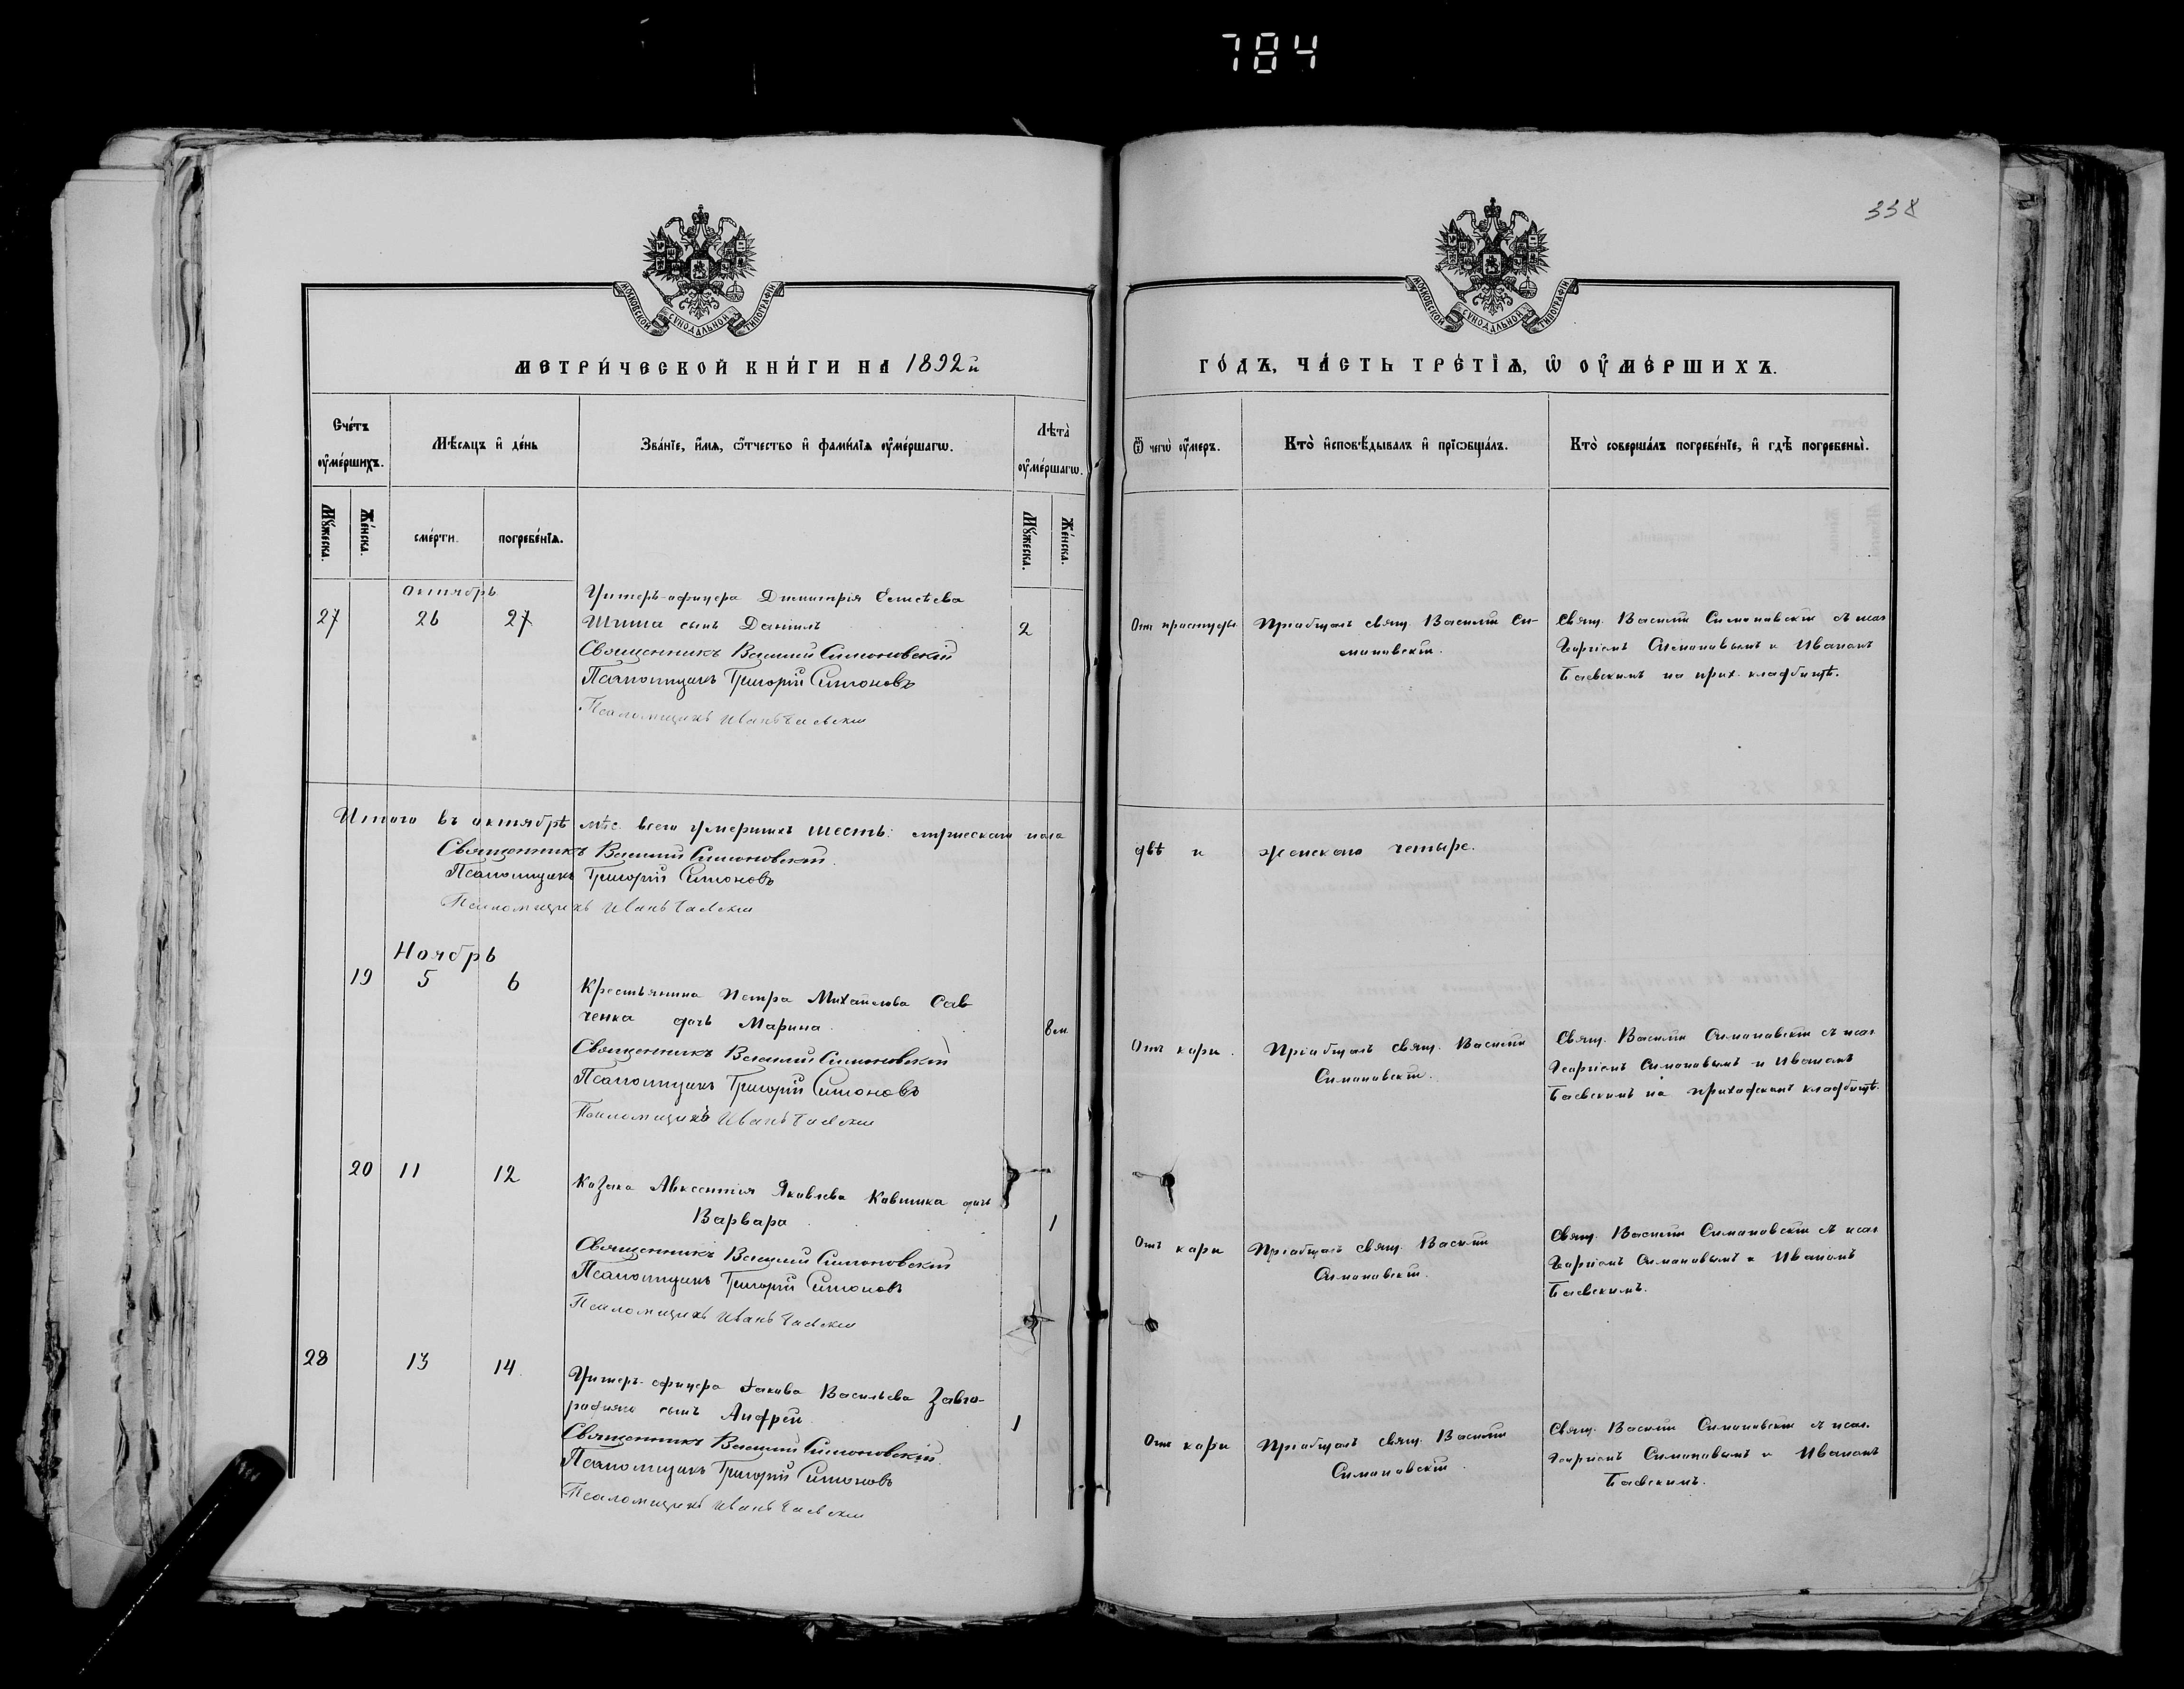 784
338
МОСКОВСКОЙ СѴНОДАЛЬНОЙ ТИПОГРАФІИ
МОСКОВСКОЙ СѴНОДАЛЬНОЙ ТИПОГРАФІИ
МЕТРИ́ЧЕСКОЙ КНИ́ГИ НА 1892 й
ГО́ДЪ, ЧА́СТЬ ТРЕ́ТІѦ, Ѡ҆ ОУ҆МЕ́РШИХЪ.
Сче́тъ оу҆ме́ршихъ.
Мѣ́сяцъ и҆ де́нь
Зва́нїе, и҆́мѧ, ѻ҆́тчество и҆ фами́лїѧ оу҆ме́ршагѡ.
Лѣта̀ оу҆ме́ршагѡ.
Ѿ чегѡ̀ оу҆́меръ.
Кто̀ и҆сповѣ́дывалъ и҆ прїѡбща́лъ.
Кто̀ соверша́лъ погребе́нїе, и҆ гдѣ̀ погребены̀.
Мꙋ́жеска.
Же́нска.
сме́рти.
погребе́нїѧ.
Мꙋ́жеска.
Же́нска.
Октябрь
27 26 27
Унтеръ-офицера Димитрія
сынъ Даніилъ
2
Священникъ Василій Симоновскій
Псаломщикъ Григорій Симоновъ
Псаломщикъ Иванъ Баевскій
Отъ простуды
Пріобщалъ свящ. Василій Си-
моновскій.
Свящ. Василій Симоновскій съ псал.
Симоновымъ и Иваномъ
Баевскимъ на прих. кладбищѣ.
Итого въ октябрѣ мѣс. всего умершихъ шесть: мужескаго пола
двѣ и женскаго четыре.
Священникъ Василій Симоновскій.
Псаломщикъ Григорій Симоновъ
Псаломщикъ Иванъ Баевскій
Ноябрь
19 5 6
Крестьянина Петра Михайлова Сав
ченка дочь Марина.
8 м
Священникъ Василій Симоновскій
Псаломщикъ Григорій Симоновъ
Псаломщикъ Иванъ Баевскій
Отъ кори.
Пріобщалъ свящ. Василій
Симоновскій.
Свящ. Василій Симоновскій съ псал.
Симоновымъ и Иваномъ
Баевскимъ на приходскомъ кладбищѣ.
20 11 12
Козака Авксентія Яковлева Ковшика дочь
Варвара
1
Священникъ Василій Симоновскій
Псаломщикъ Григорій Симоновъ
Псаломщикъ Иванъ Баевскій
Отъ кори
Пріобщалъ свящ. Василій
Симоновскій.
Свящ. Василій Симоновскій съ псал.
Симоновымъ и Иваномъ
Баевскимъ.
28 13 14
Унтеръ-офицера Іакова Васильева Завго-
родняго сынъ Андрей
1
Священникъ Василій Симоновскій.
Псаломщикъ Григорій Симоновъ
Псаломщикъ Иванъ Баевскій
Отъ кори
Пріобщалъ свящ. Василій
Симоновскій.
Свящ. Василій Симоновскій съ псал.
Симоновымъ и Иваномъ
Баевскимъ.